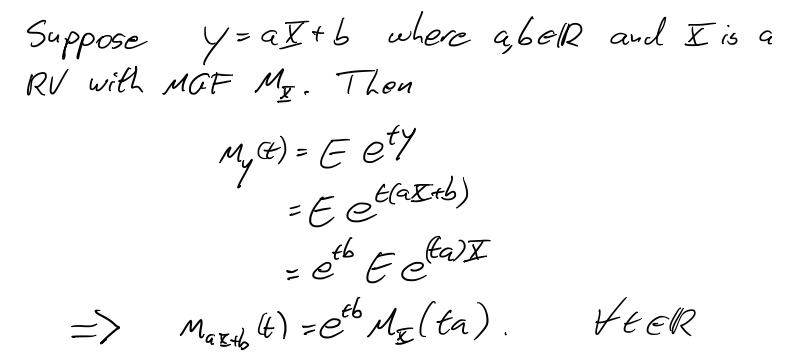 Suppose Y = aX + b where a,b∈ℝ and X is a
RV with MGF M_X. Then
M_Y(t) = E e^{tY}
= E e^{t(aX+b)}
= e^{tb} E e^{(ta)X}
=> M_{aX+b}(t) = e^{tb} M_X(ta). ∀t∈ℝ